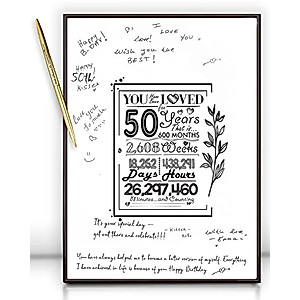 Happy
B-Day!
I LOVE
YOU
LOVE!
Wish you the
BEST!
HAPPY
50TH
SISTER
Love you
YOU Have Been LOVED
for
50 Years
That is...
600 MONTHS
2,608 Weeks
18,262 438,291
Days Hours
26,297,460
Minutes... and Counting
It's your special day -
get out there and celebrate!!!
You have always helped me to become a better version of myself. Everything
I have achieved in life is because of you Happy Birthday